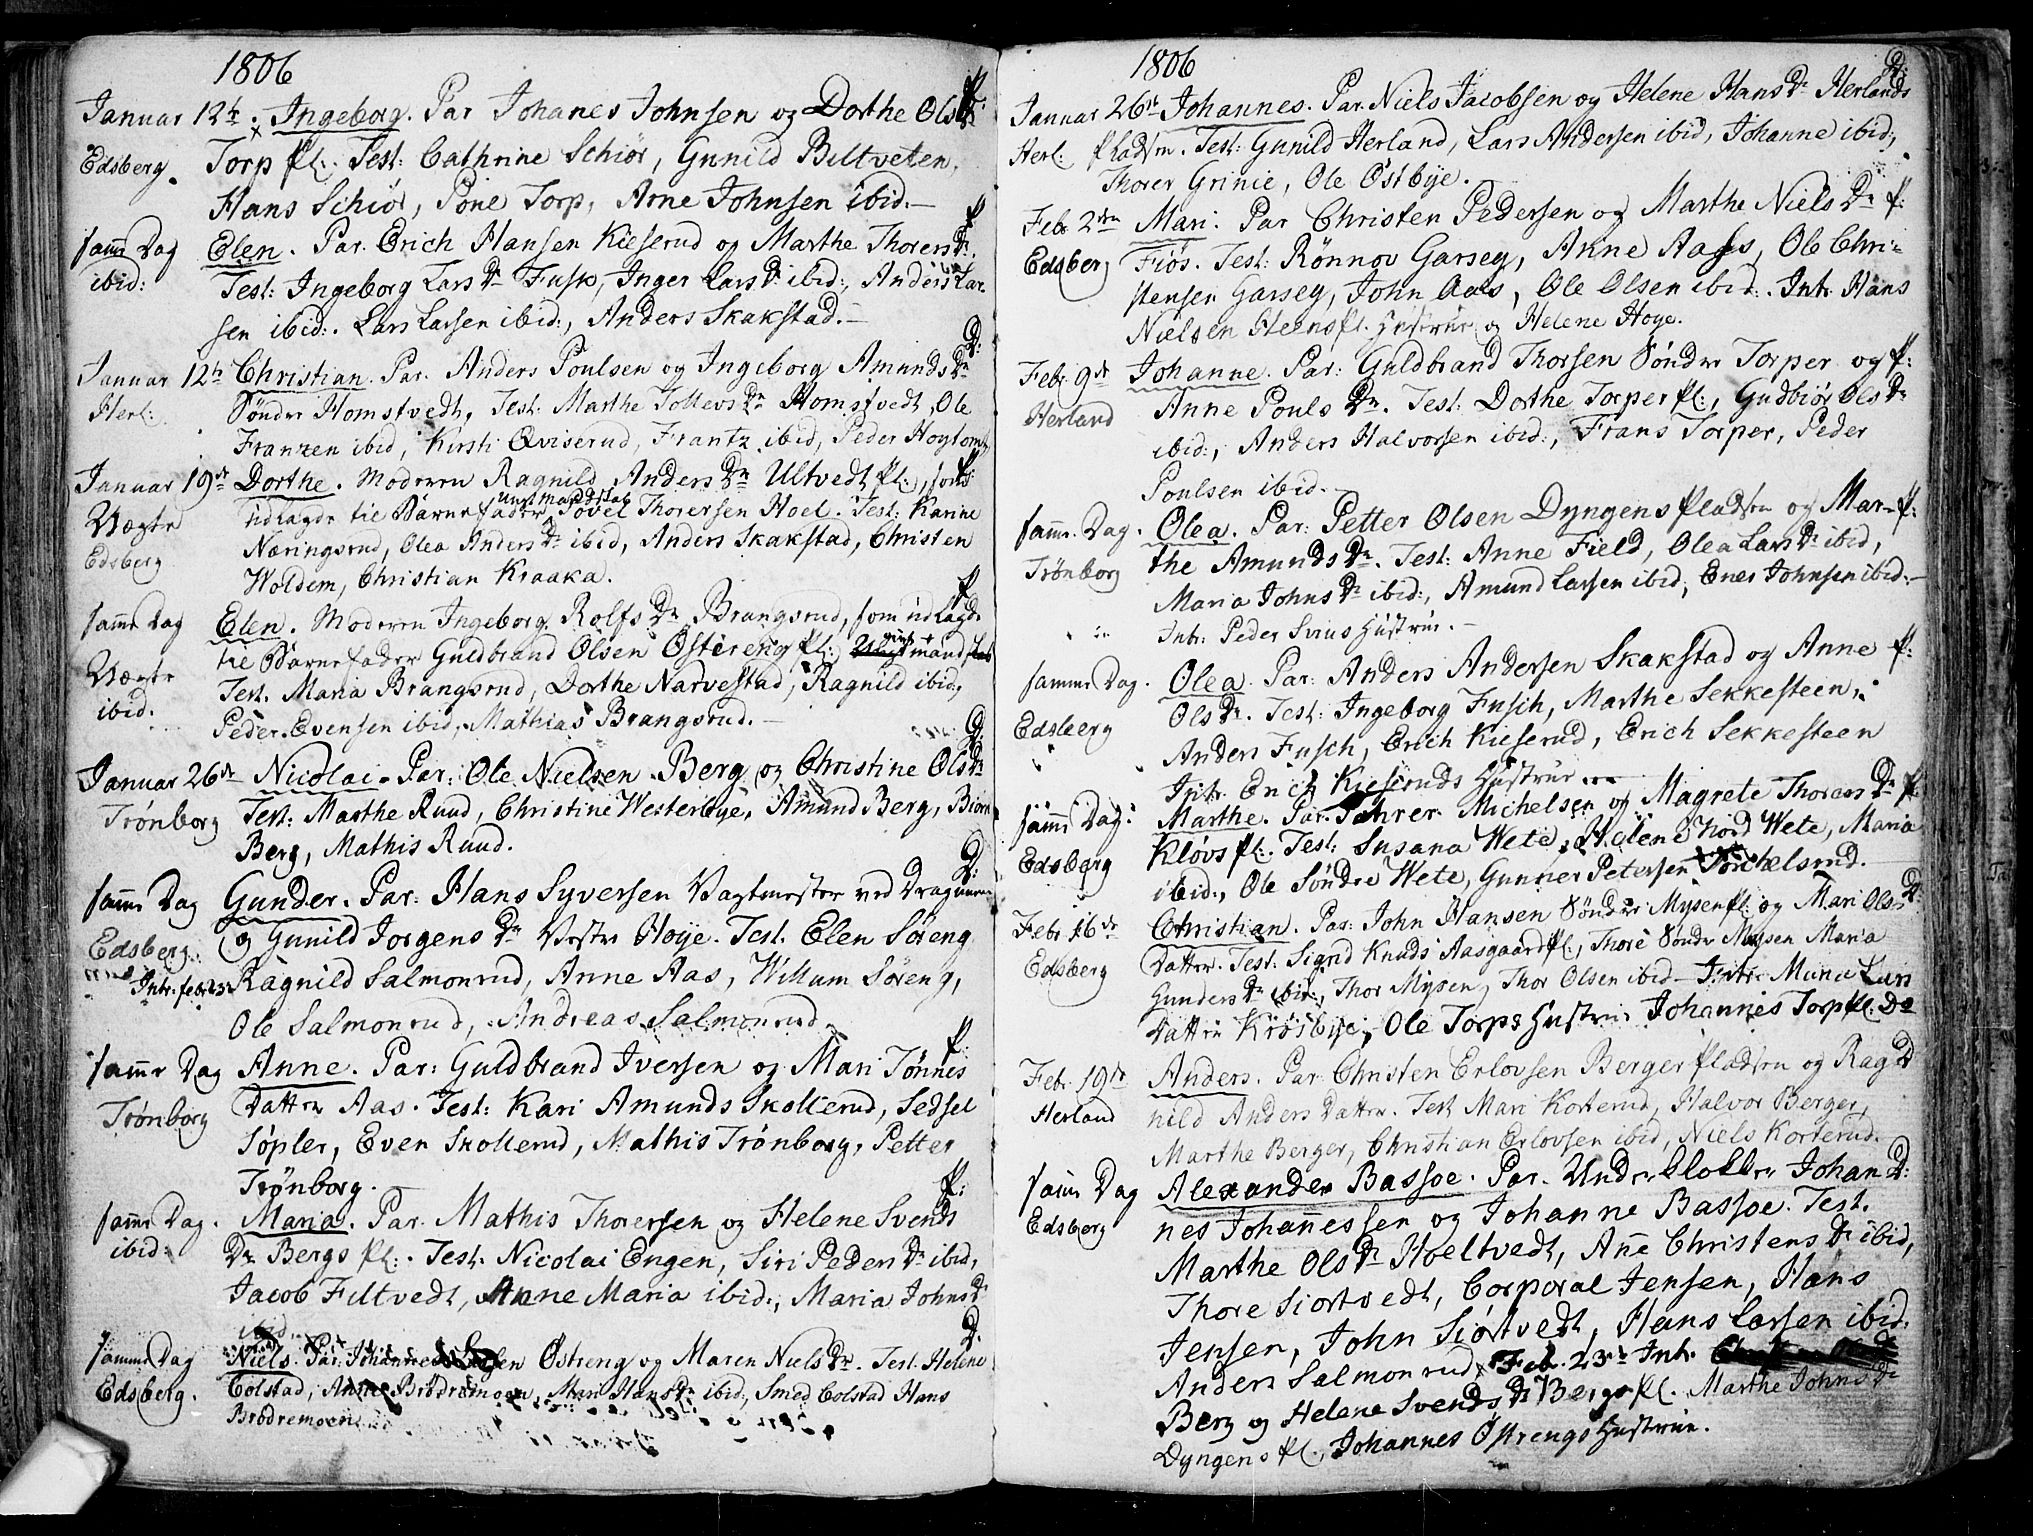 1806
Januar 12te Ingeborg. Par Johanes Johnsen og Dorthe Ols Dr
Edsberg. Torp Pl. Test: Cathrine Schiör, Gunild Biltveten,
Hans Schiör, Pone Torp, Arne Johnsen ibid.—
samme Dag Elen. Par. Erich Hansen Kieserud og Marthe Thorers Dr.
ibid: Test: Ingeborg Lars Dr Fusk, Inger Lars Dr ibid:, Anders Lar-
sen ibid:. Lars Larsen ibid:, Anders Skakstad.—
Januar 12te Christian. Par. Anders Poulsen og Ingeborg Amunds Dr
Herl: Sönder Homstvedt, Test: Marthe Tollevs Dr Homstvedt, Ole
Franzen ibid, Kirsti Qviserud, Frantz ibid, Peder Hoytomt
Januar 19de Dorthe. Moderen Ragnild Anders Dr Ultvedt Pl:, som
Uægte udlagde til Barnefader Povel Thorersen Hoel. Test: Karine
Edsberg Næringsrud, Olea Anders Dr ibid, Anders Skakstad, Christen
Woldem, Christian Kraaka.
samme Dag Elen. Moderen Ingeborg Rolfs Dr Brangsrud, som udlagde
til Barnefader Guldbrand Olsen Östereng Pl:
Uægte Test. Maria Brangsrud, Dorthe Narvestad, Ragnild ibid:,
ibid. Peder Evensen ibid, Mathias Brangsrud.—
Januar 26de Nicolai. Par: Ole Nielsen Berg og Christine Ols Dr
Trönborg Test: Marthe Ruud, Christine Westerbye, Amund Berg, Biörn
Berg, Mathis Ruud.
samme Dag Gunder. Par: Hans Syversen Vagtmester ved Dragunerne
Edsberg. og Gunild Jorgens Dr Vester Höye. Test. Elen Söreng
Intr. febr. 23 Ragnild Salmonrud, Anne Aas, Willum Söreng,
Ole Salmonrud, Andreas Salmonrud.
samme Dag Anne. Par: Guldbrand Iversen og Mari Tönnes
Trönborg Datter Aas. Test: Kari Amunds Skollerud, Sedsel
Söpler, Even Skollerud, Mathis Trönborg, Petter
Trönborg.
samme Dag. Maria. Par. Mathis Thorersen og Helene Svends
ibid: Dr Bergs Pl:. Test. Nicolai Engen, Siri Peders Dr ibid,
Jacob Filtvedt, Anne Maria ibid:, Maria Johns Dr
ibid.
samme Dag Niels. Par: Johannes Östreng og Maren Niels Dr. Test. Helene
Edsberg. Colstad, Anne Brödremoen, Mari Hans Dr ibid:, Smed Colstad Hans
Brödremoen
1806
Januar 26de Johannes. Par. Niels Jacobsen og Helene Hans Dr Herlands
Herl: Pladsen. Test: Gunild Herland, Lars Andersen ibid, Johanne ibid:,
Thorer Grinie, Ole Östbye.
Feb. 2den Mari. Par Christen Pedersen og Marthe Niels Dr P:
Edsberg Fiös. Test: Rönnov Garseg, Anne Aass, Ole Chri-
stensen Garseg, John Aas, Ole Olsen ibid:. Intr. Hans
Nielsen Heens Pl. Hustrue og Helene Hoye.
Febr. 9de Johanne. Par: Guldbrand Thorsen Sönder Torper og P:
Herland Anne Pouls Dr. Test: Dorthe Torper Pl:, Gudbiör Ols Dr
ibid:, Anders Halvorsen ibid:, Frans Torper, Peder
Poulsen ibid.
samme Dag. Olea. Par: Petter Olsen Dyngens Pladsen og Mar- P:
Trönborg the Amunds Dr. Test: Anne Field, Olea Lars Dr ibid,
Maria Johns Dr ibid:, Amund Larsen ibid, Ener Johnsen ibid:
Intr: Peder Svius Hustrue.—
samme Dag. Olea. Par: Anders Andersen Skakstad og Anne P:
Edsberg Ols Dr. Test: Ingeborg Fusch, Marthe Sekkesteen,
Anders Fusch, Erich Kieserud, Erich Sekkesteen
Intr. Erich Kieseruds Hustrue
samme Dag: Marthe. Par. Fohrer Michelsen og Magrete Thorers Dr P:
Edsberg Klövs Pl. Test: Susana Wete, Helene Nord Wete, Maria
ibid:, Ole Söndre Wete, Gunner Petersen Torchelsrud.
Febr. 16de Christian. Par: John Hansen Sönder Mysen Pl: og Mari Ols D:
Edsberg Datter. Test: Sigrid Knuds Aasgaard Pl:, Thore Sönder Mysen Maria
Gunders Dr ibid:, Thor Mysen, Thor Olsen ibid— Intr: Maria Lars
Datter Krosbye, Ole Torps Hustrue Johannes Torp Pl. Dr
Febr. 19de Anders. Par Christen Erlovsen Berger Pladsen og Rag D
Herland nild Anders Datter. Test Mari Korterud, Halvor Berger,
Marthe Berger, Christian Erlovsen ibid, Niels Korterud.
samme Dag Alexander Bassoe. Par. Under Klokker Johan D:
Edsberg nes Johannessen og Johanne Bassoe. Test.
Marthe Ols Dr Hoeltvedt, Anne Christens Dr ibid,
Thore Siortvedt, Corporal Jensen, Hans
Jensen, John Siörtvedt, Hans Larsen ibid.
Anders Salmonrud. Feb. 23de Intr.
Berg og Helene Svends Dr Bergs Pl. Marthe Johns Dr
Dyngens Pl. Johannes Östrengs Hustrue.